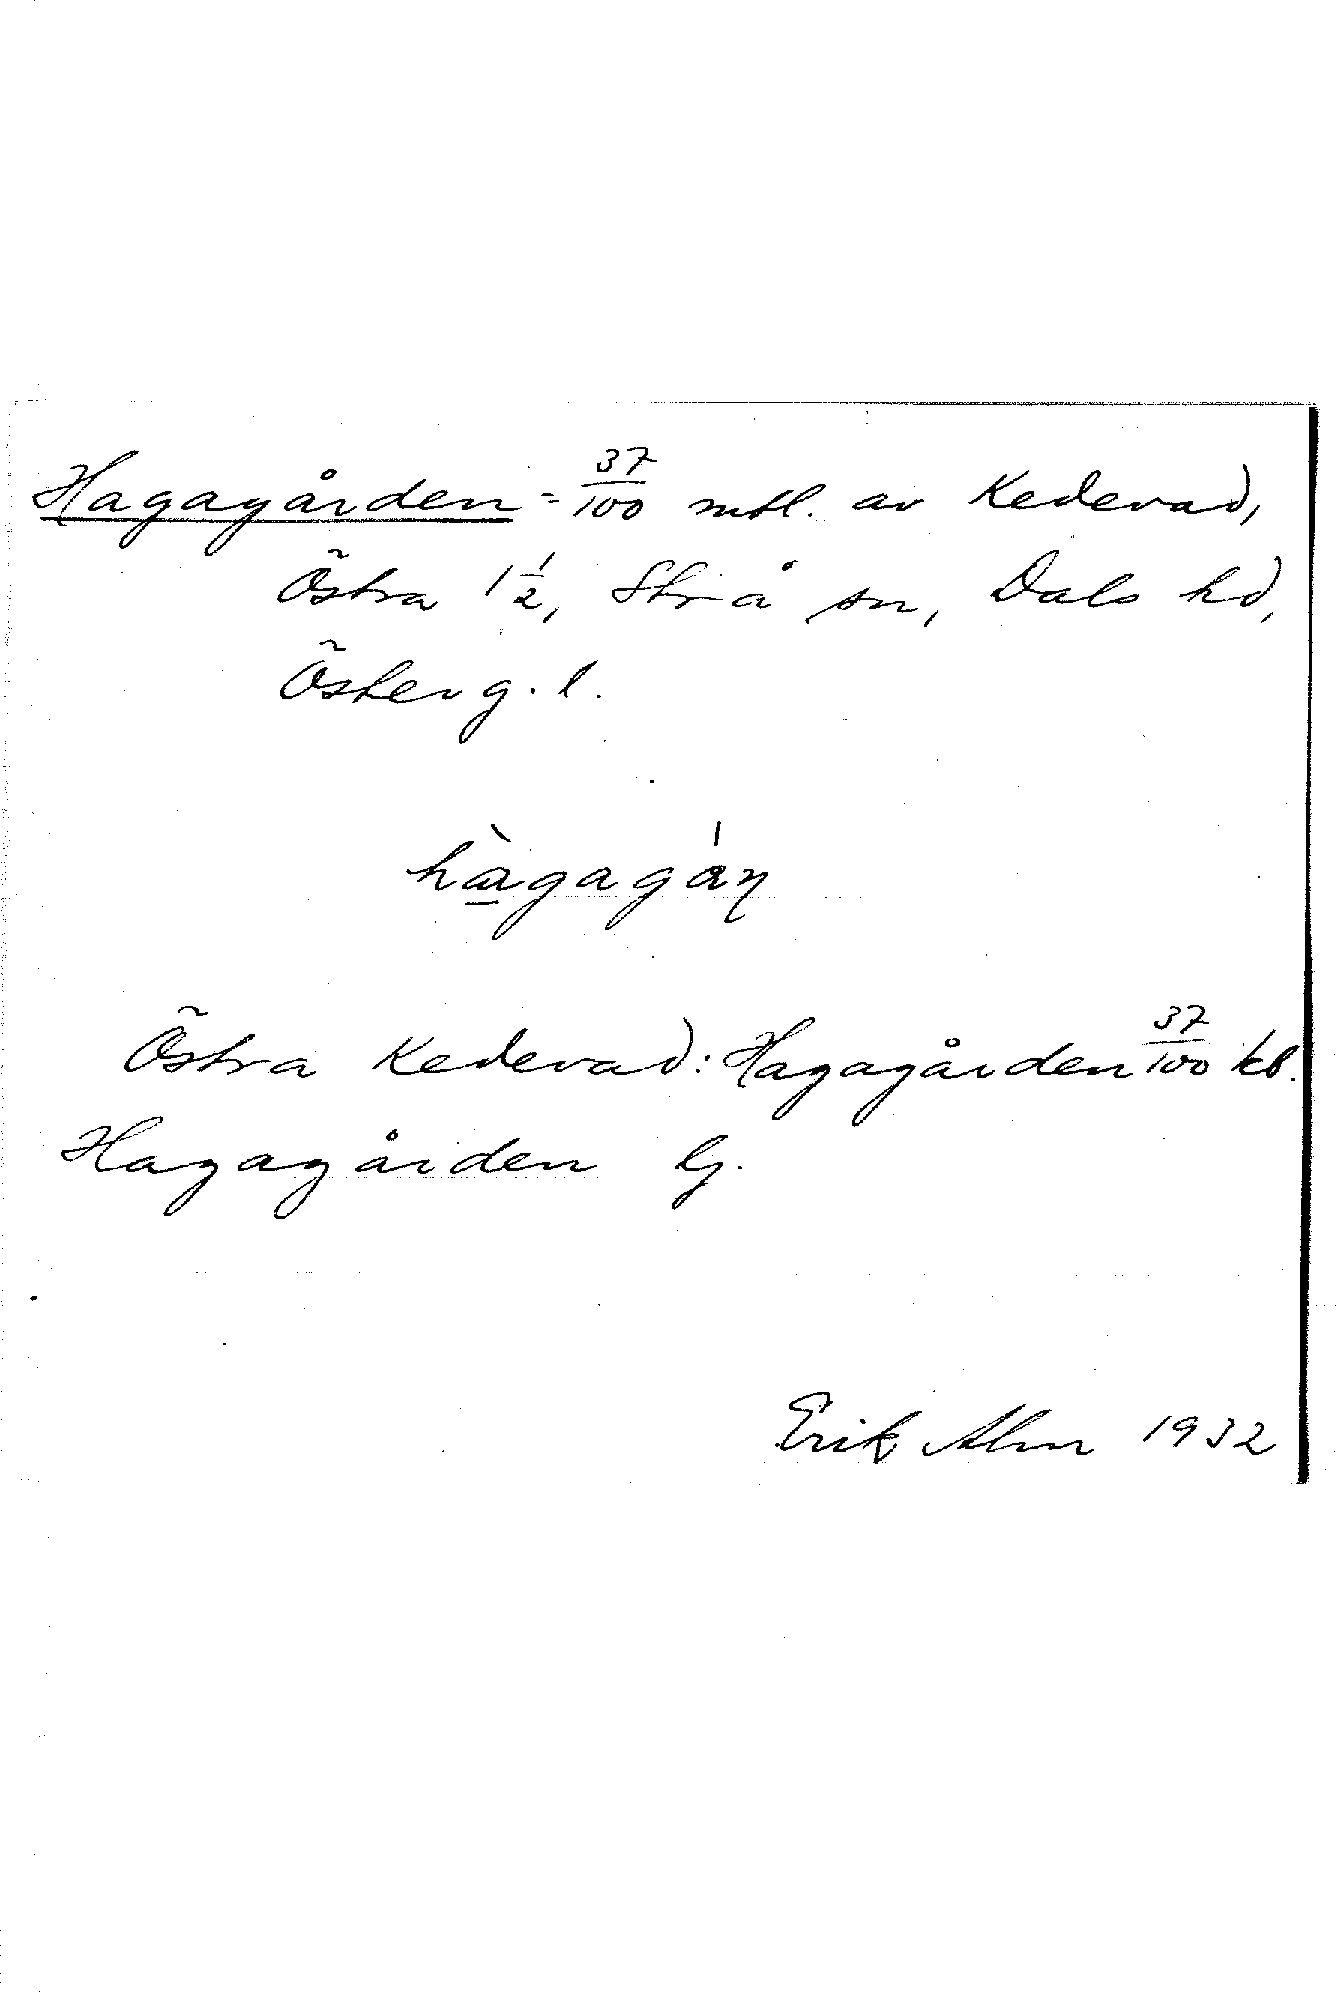 Hagagården = 37/100 mtl. av Kedevad,
Östra 1 1/2, Strå sn, Dals hd,
Österg. l.
hàgagán
Östra Kedevad: Hagagården 37/100 kb.
Hagagården lj.
Erik Alm 1932